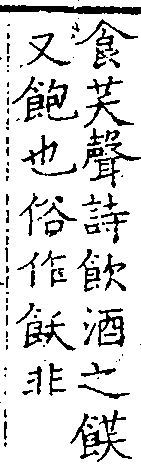 食芺聲詩飲酒之
又飽也俗作飫非